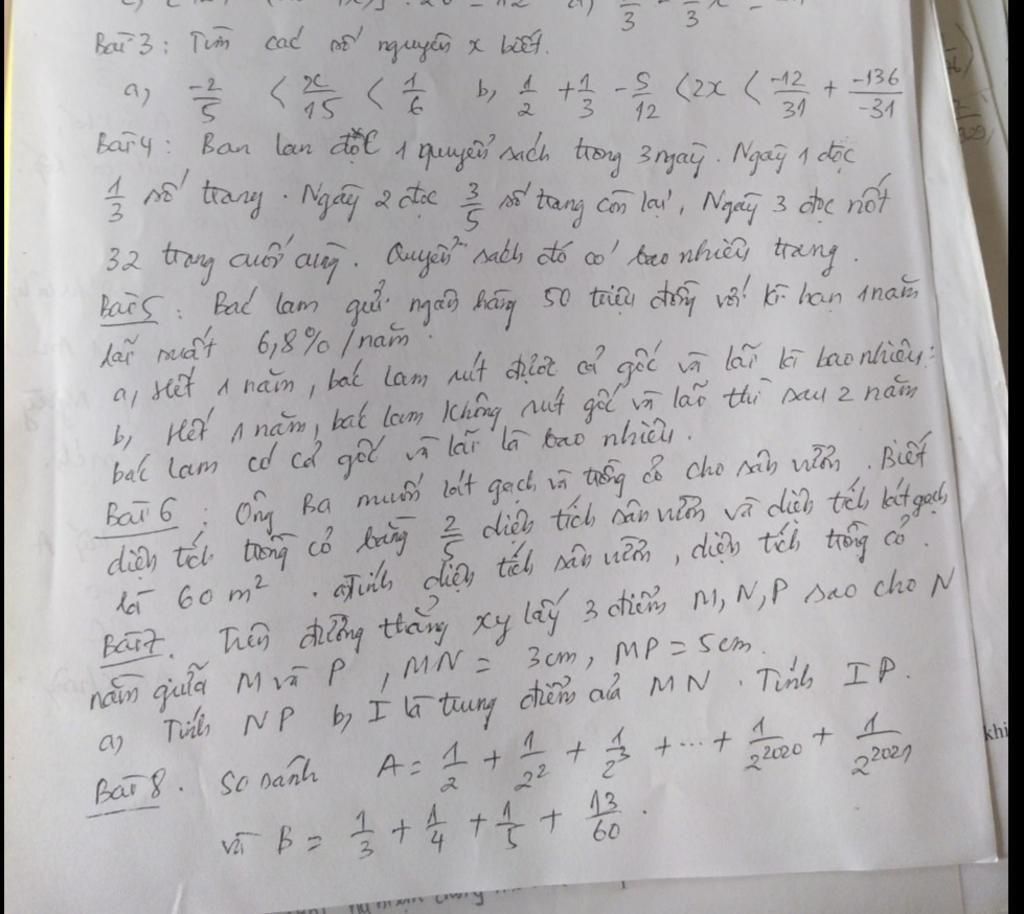 Bài 3 : Tìm các số nguyên x biết.
a, -2/5 < x/15 < 1/6 b, 1/2 + 1/3 - 5/12 < 2x < -12/31 + -136/-31
Bài 4 : Bạn lan đọc 1 quyển sách trong 3 ngày. Ngày 1 đọc
1/3 số trang. Ngày 2 đọc 3/5 số trang còn lại, Ngày 3 đọc nốt
32 trang cuối cùng. Quyển sách đó có bao nhiêu trang.
Bài 5 : Bác lam gửi ngân hàng 50 triệu đồng với kì hạn 1 năm
lãi suất 6,8% / năm.
a, Hết 1 năm, bác lam rút được cả gốc và lãi là bao nhiêu:
b, Hết 1 năm, bác lam không rút gốc và lão thì sau 2 năm
bác lam có cả gốc và lãi là bao nhiêu.
Bài 6 : Ông Ba muốn lát gạch và trồng cỏ cho sân vườn. Biết
diện tích trồng cỏ bằng 2/5 diện tích sân vườn và diện tích lát gạch
là 60 m². Tính diện tích sân vườn, diện tích trồng cỏ.
Bài 7. Trên đường thẳng xy lấy 3 điểm M, N, P sao cho N
nằm giữa M và P, MN = 3cm, MP = 5cm.
a, Tính NP b, I là trung điểm của MN. Tính IP.
Bài 8. So sánh A = 1/2 + 1/2² + 1/2³ + ... + 1/2²⁰²⁰ + 1/2²⁰²¹
và B = 1/3 + 1/4 + 1/5 + 13/60.
khi